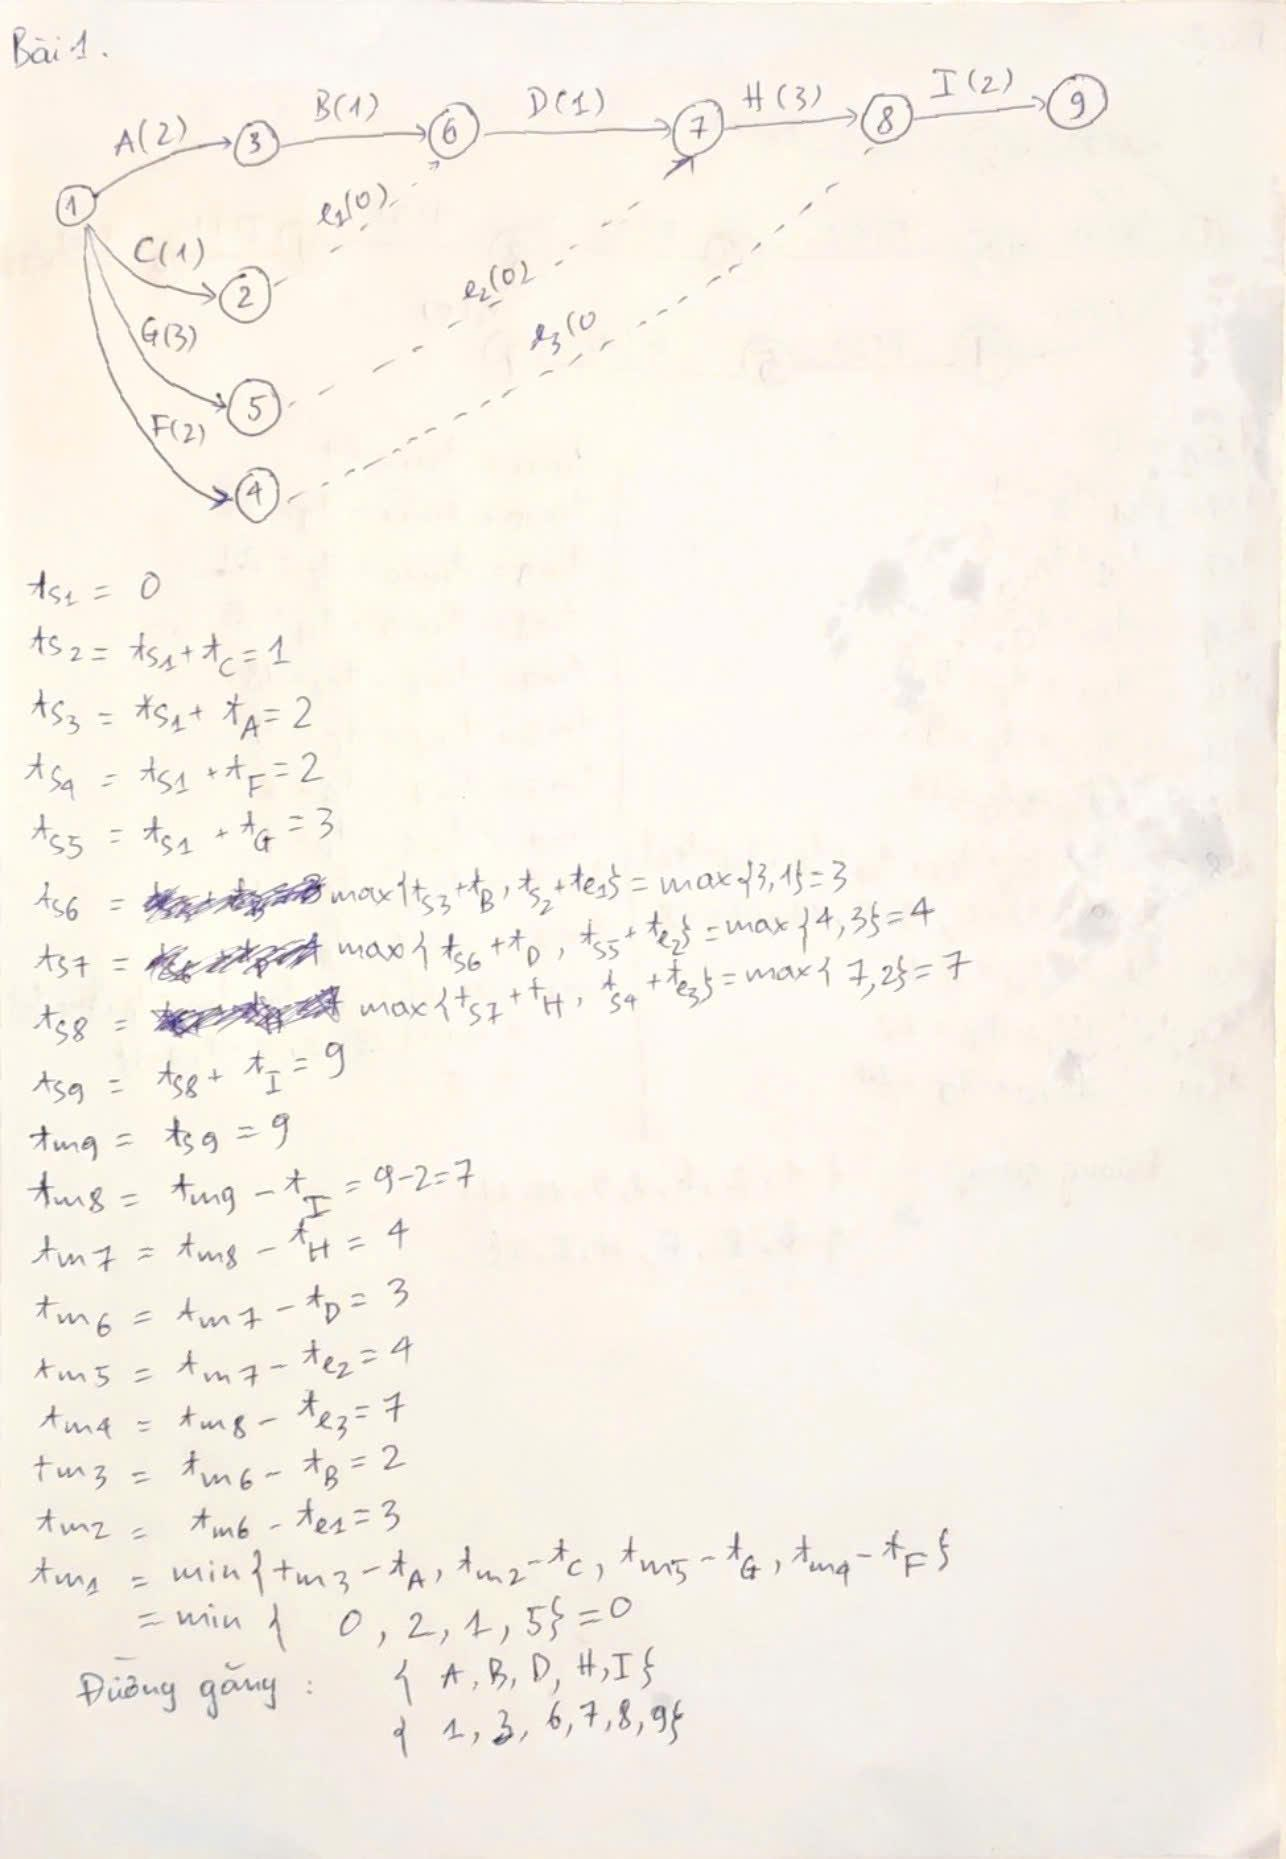 Bài 1.
A(2) 3 B(1) 6 D(1) 7 H(3) 8 I(2) 9
1
C(1) 2 e₁(0)
G(3) 5 e₂(0)
F(2) 4 e₃(0
t_{S1} = 0
t_{S2} = t_{S1} + t_C = 1
t_{S3} = t_{S1} + t_A = 2
t_{S4} = t_{S1} + t_F = 2
t_{S5} = t_{S1} + t_G = 3
t_{S6} = max{t_{S3} + t_B, t_{S2} + t_{e1}} = max{3,1} = 3
t_{S7} = max{t_{S6} + t_D, t_{S5} + t_{e2}} = max{4,3} = 4
t_{S8} = max{t_{S7} + t_H, t_{S4} + t_{e3}} = max{7,2} = 7
t_{S9} = t_{S8} + t_I = 9
t_{m9} = t_{S9} = 9
t_{m8} = t_{m9} - t_I = 9-2=7
t_{m7} = t_{m8} - t_H = 4
t_{m6} = t_{m7} - t_D = 3
t_{m5} = t_{m7} - t_{e2} = 4
t_{m4} = t_{m8} - t_{e3} = 7
t_{m3} = t_{m6} - t_B = 2
t_{m2} = t_{m6} - t_{e1} = 3
t_{m1} = min{t_{m3} - t_A, t_{m2} - t_C, t_{m5} - t_G, t_{m4} - t_F}
= min { 0, 2, 1, 5} = 0
Đường găng : { A, B, D, H, I}
{ 1, 3, 6, 7, 8, 9}